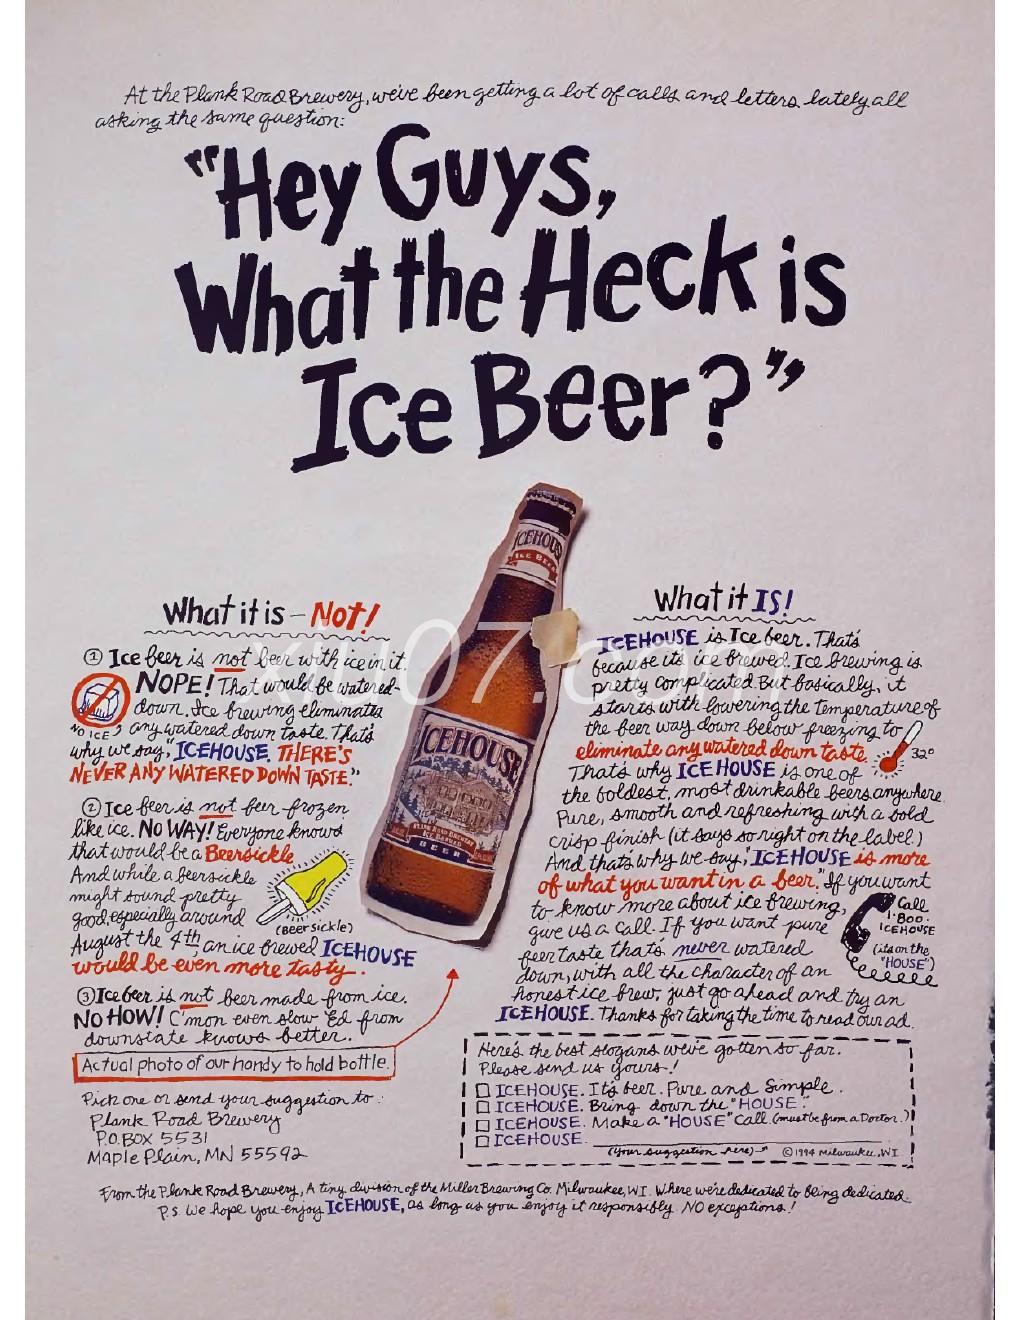 At the Plank Road Brewery, we've been getting a lot of calls and letters lately all
asking the same question:
"Hey Guys,
What the Heck is
Ice Beer?"
What it is - Not!
① Ice beer is not beer with ice in it.
NOPE! That would be watered-
down. Ice brewing eliminates
NO ICE
any watered down taste. That's
why we say, "ICEHOUSE. THERE'S
NEVER ANY WATERED DOWN TASTE."
② Ice beer is not beer frozen
like ice. NO WAY! Everyone knows
that would be a Beersickle
And while a beersickle
might sound pretty
good, especially around
(Beersickle)
August the 4th an ice brewed ICEHOUSE
would be even more tasty.
③ Ice beer is not beer made from ice.
NO HOW! C'mon even slow 'Ed from
downstate knows better.
Actual photo of our handy to hold bottle.
Pick one or send your suggestion to:
Plank Road Brewery
P.O. BOX 5531
Maple Plain, MN 55592
ICEHOUSE
ICE BEER
ICEHOUSE
PLANK ROAD BREWERY
ICE BREWED
BEER
What it IS!
ICEHOUSE is Ice beer. That's
because it's ice brewed. Ice brewing is
pretty complicated. But basically, it
starts with lowering the temperature of
the beer way down below freezing to
eliminate any watered down taste.
32°
That's why ICEHOUSE is one of
the boldest, most drinkable beers anywhere.
Pure, smooth and refreshing with a bold
crisp finish (it says so right on the label.)
And that's why we say, "ICEHOUSE is more
of what you want in a beer." If you want
to know more about ice brewing,
give us a call. If you want pure
beer taste that's never watered
down, with all the character of an
honest ice brew, just go ahead and try an
ICEHOUSE. Thanks for taking the time to read our ad.
Call
1·800·
ICEHOUSE
(it's on the
"HOUSE")
Here's the best slogans we've gotten so far.
Please send us yours!
ICEHOUSE. It's beer. Pure and Simple.
ICEHOUSE. Bring down the "HOUSE."
ICEHOUSE. Make a "HOUSE" Call. (must be from a Doctor.)
ICEHOUSE.
(your suggestion here)
©1994 Milwaukee, WI
From the Plank Road Brewery, A tiny division of the Miller Brewing Co. Milwaukee, WI. Where we're dedicated to being dedicated.
P.S. We hope you enjoy ICEHOUSE, as long as you enjoy it responsibly. NO exceptions!
xu07.com